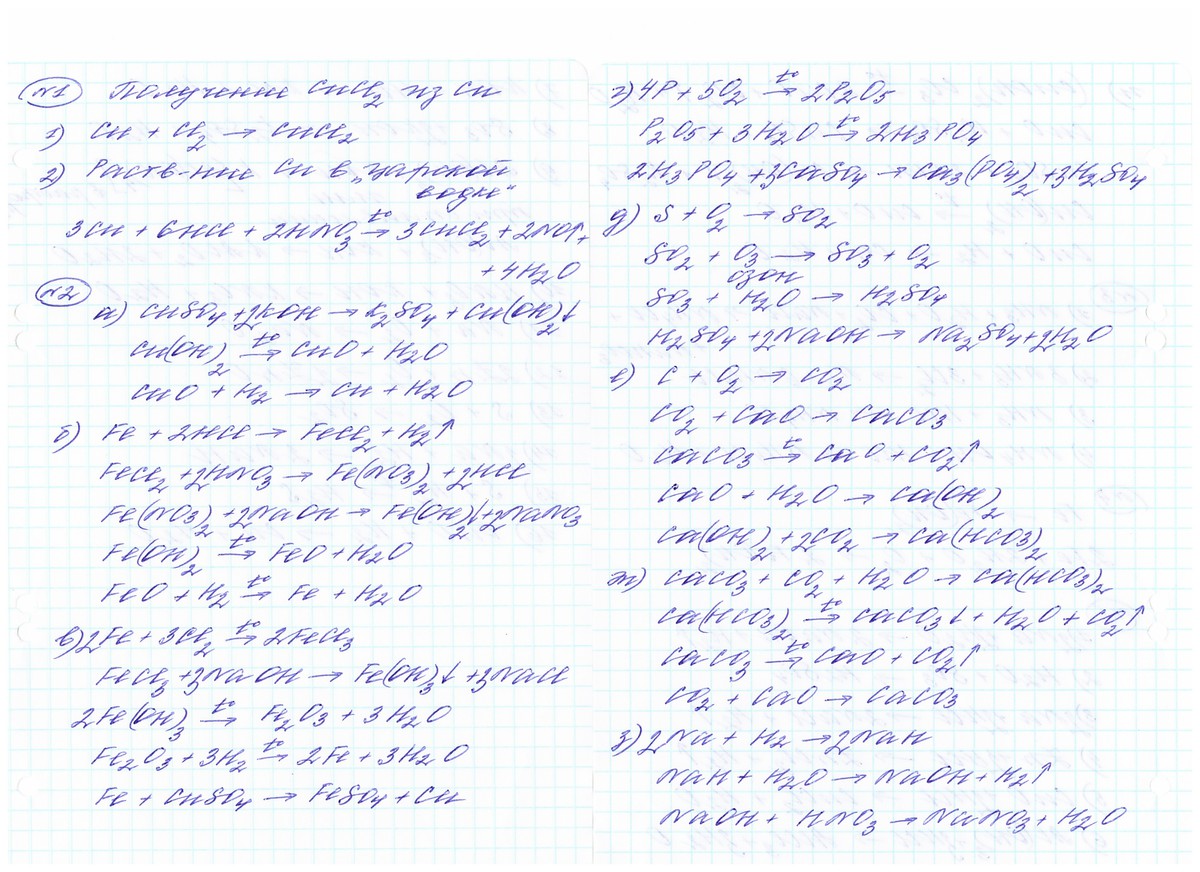 №1 Получение CuCl2 из Cu
1) Cu + Cl2 → CuCl2
2) Раств-ние Cu в „царской
водке“
3Cu + 6HCl + 2HNO3 t°→ 3CuCl2 + 2NO↑ +
+ 4H2O
№2
а) CuSO4 + 2KOH → K2SO4 + Cu(OH)2↓
Cu(OH)2 t°→ CuO + H2O
CuO + H2 → Cu + H2O
б) Fe + 2HCl → FeCl2 + H2↑
FeCl2 + 2HNO3 → Fe(NO3)2 + 2HCl
Fe(NO3)2 + 2NaOH → Fe(OH)2↓ + 2NaNO3
Fe(OH)2 t°→ FeO + H2O
FeO + H2 t°→ Fe + H2O
в) 2Fe + 3Cl2 t°→ 2FeCl3
FeCl3 + 3NaOH → Fe(OH)3↓ + 3NaCl
2Fe(OH)3 t°→ Fe2O3 + 3H2O
Fe2O3 + 3H2 t°→ 2Fe + 3H2O
Fe + CuSO4 → FeSO4 + Cu
г) 4P + 5O2 t°→ 2P2O5
P2O5 + 3H2O t°→ 2H3PO4
2H3PO4 + 3CaSO4 → Ca3(PO4)2 + 3H2SO4
д) S + O2 → SO2
SO2 + O3 → SO3 + O2
озон
SO3 + H2O → H2SO4
H2SO4 + 2NaOH → Na2SO4 + 2H2O
е) C + O2 → CO2
CO2 + CaO → CaCO3
CaCO3 t°→ CaO + CO2↑
CaO + H2O → Ca(OH)2
Ca(OH)2 + 2CO2 → Ca(HCO3)2
ж) CaCO3 + CO2 + H2O → Ca(HCO3)2
Ca(HCO3)2 t°→ CaCO3↓ + H2O + CO2↑
CaCO3 t°→ CaO + CO2↑
CO2 + CaO → CaCO3
з) 2Na + H2 → 2NaH
NaH + H2O → NaOH + H2↑
NaOH + HNO3 → NaNO3 + H2O